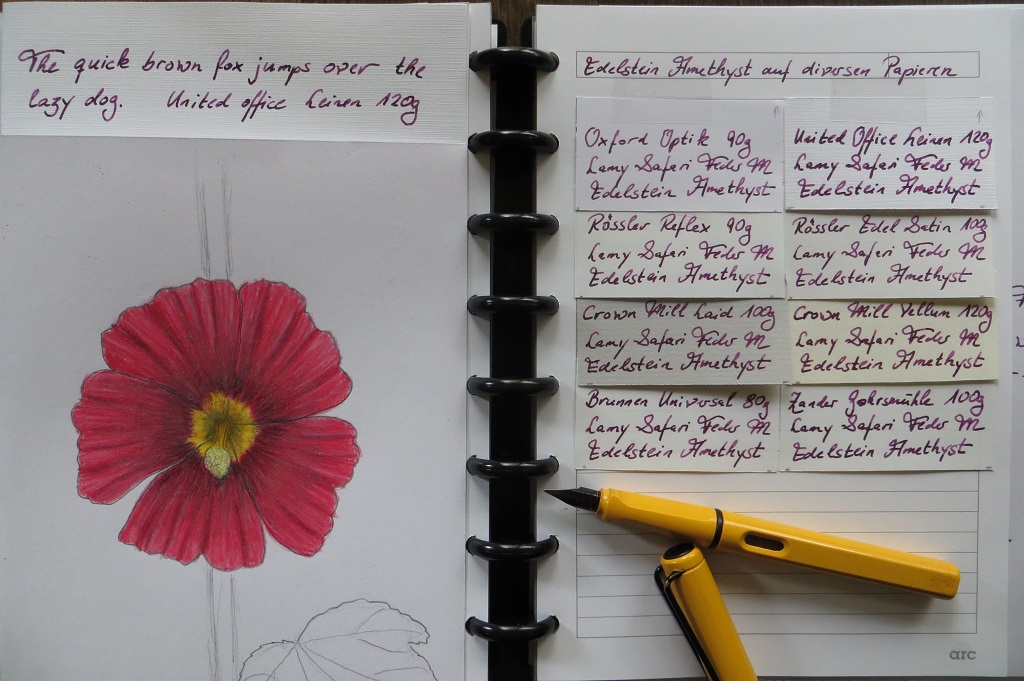 The quick brown fox jumps over the
lazy dog. United office Leinen 120g
Edelstein Amethyst auf diversen Papieren
Oxford Optik 90g
Lamy Safari Feder M
Edelstein Amethyst
United Office Leinen 120g
Lamy Safari Feder M
Edelstein Amethyst
Rössler Reflex 90g
Lamy Safari Feder M
Edelstein Amethyst
Rössler Edel Satin 100g
Lamy Safari Feder M
Edelstein Amethyst
Crown Mill Laid 100g
Lamy Safari Feder M
Edelstein Amethyst
Crown Mill Vellum 120g
Lamy Safari Feder M
Edelstein Amethyst
Brunnen Universal 80g
Lamy Safari Feder M
Edelstein Amethyst
Zander Gohrsmühle 100g
Lamy Safari Feder M
Edelstein Amethyst
arc